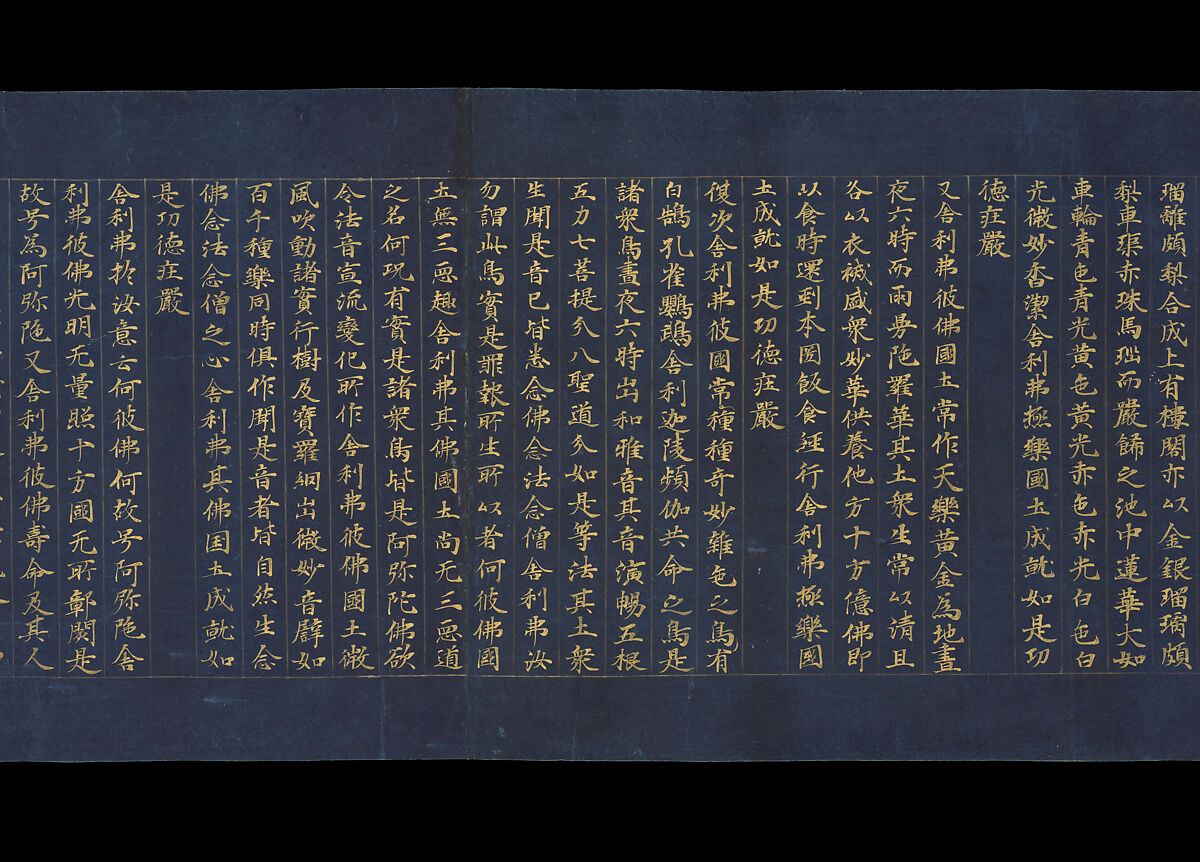 瑠離頗梨合成上有樓閣亦以金銀瑠璃頗
梨車渠赤珠馬瑙而嚴飾之池中蓮華大如
車輪青色青光黃色黃光赤色赤光白色白
光微妙香潔舍利弗極樂國土成就如是功
德莊嚴
又舍利弗彼佛國土常作天樂黃金為地晝
夜六時而雨曼陁羅華其土眾生常以清旦
各以衣裓盛眾妙華供養他方十方億佛即
以食時還到本國飯食經行舍利弗極樂國
土成就如是功德莊嚴
復次舍利弗彼國常種種奇妙雜色之鳥有
白鵠孔雀鸚鵡舍利迦陵頻伽共命之鳥是
諸眾鳥晝夜六時出和雅音其音演暢五根
五力七菩提分八聖道分如是等法其土眾
生聞是音已皆悉念佛念法念僧舍利弗汝
勿謂此鳥實是罪報所生所以者何彼佛國
土無三惡趣舍利弗其佛國土尚无三惡道
之名何況有實是諸眾鳥皆是阿弥陀佛欲
令法音宣流變化所作舍利弗彼佛國土微
風吹動諸實行樹及寶羅網出微妙音譬如
百千種樂同時俱作聞是音者皆自然生念
佛念法念僧之心舍利弗其佛国土成就如
是功德莊嚴
舍利弗於汝意云何彼佛何故号阿弥陁舍
利弗彼佛光明无量照十方國无所鄣閡是
故号為阿弥陁又舍利弗彼佛壽命及其人